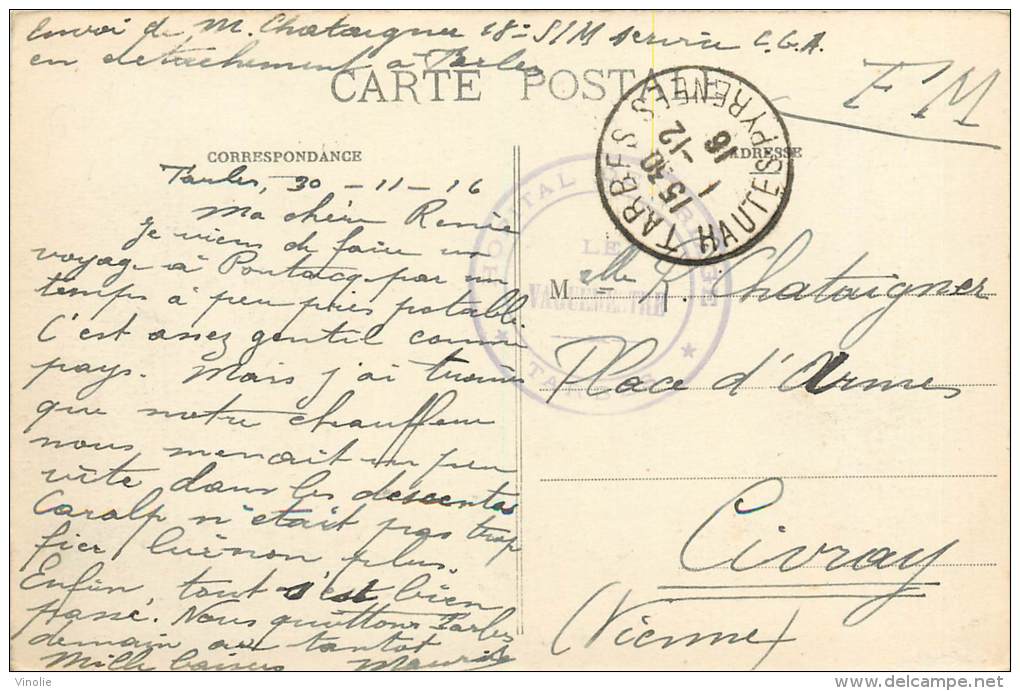 Envoi de M. Chataigner 18e SIM service C.G.A.
en détachement à Tarbes
CARTE POSTALE
FM
CORRESPONDANCE
ADRESSE
TARBES
15 30
1 -12
16
HAUTES PYRENEES
HOPITAL
LE
VAGUEMESTRE
* TARBES *
Tarbes, 30 - 11 - 16
Ma chère Renée
Je viens de faire un
voyage à Pontacq par un
temps à peu près potable.
C'est assez gentil comme
pays. Mais j'ai trouvé
que notre chauffeur
nous menait un peu
vite dans les descentes
Caralp n'était pas trop
fier lui non plus.
Enfin, tout s'est bien
passé. Nous quittons Tarbes
demain ou tantot
Mille baisers Maurice
Mlle R. Chataigner
Place d'Armes
Civray
(Vienne)
Vinolie
delcampe.net